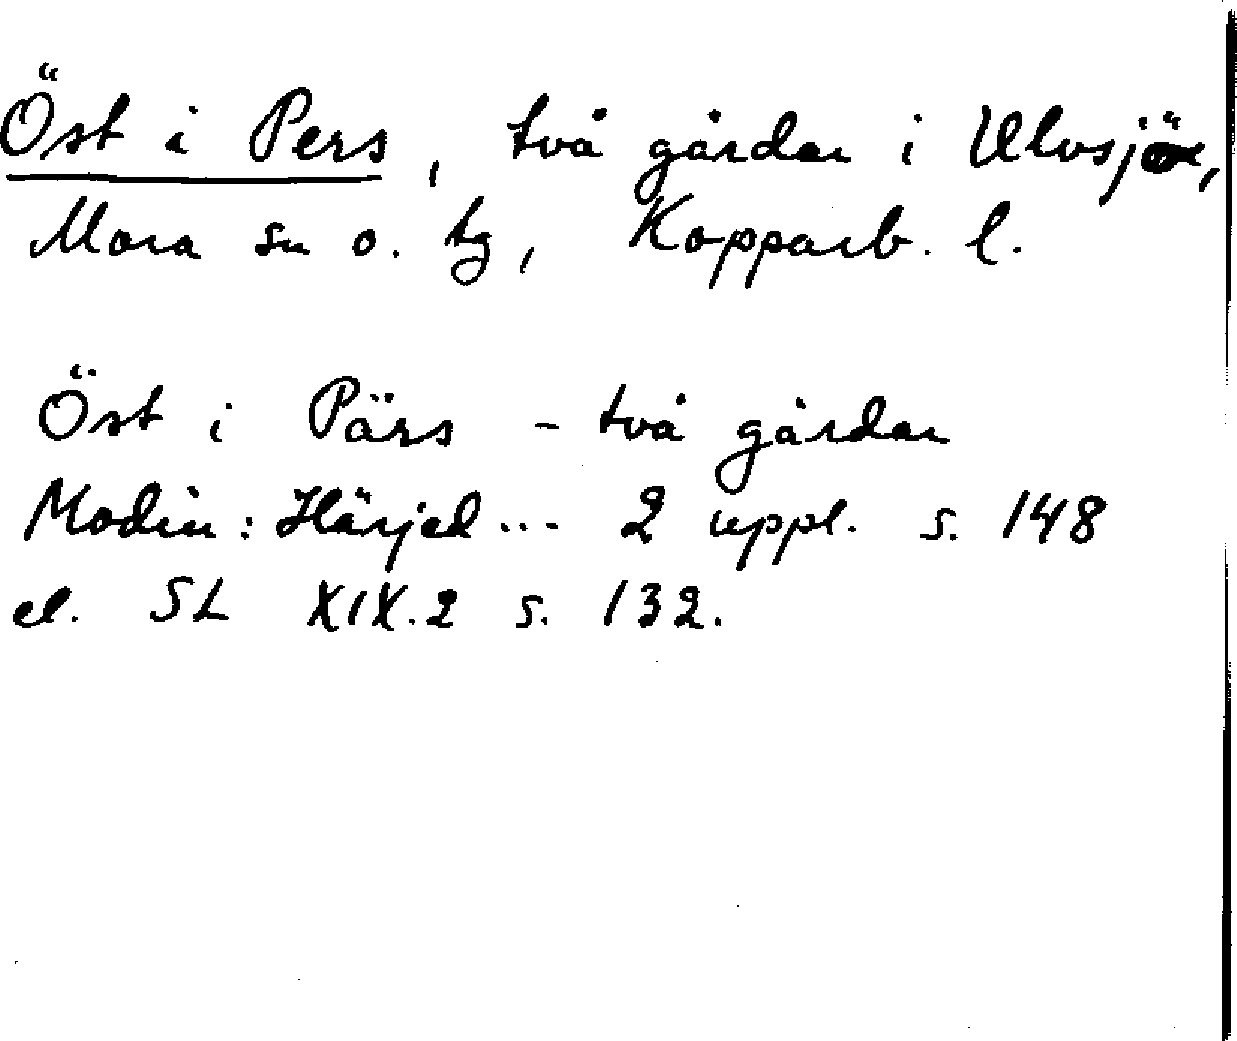 Öst i Pers, två gårdar i Ulvsjö,
Mora sn o. tg, Kopparb. l.
Öst i Pärs - två gårdar
Modin: Härjed... 2 uppl. s. 148
el. SL XIX.2 s. 132.